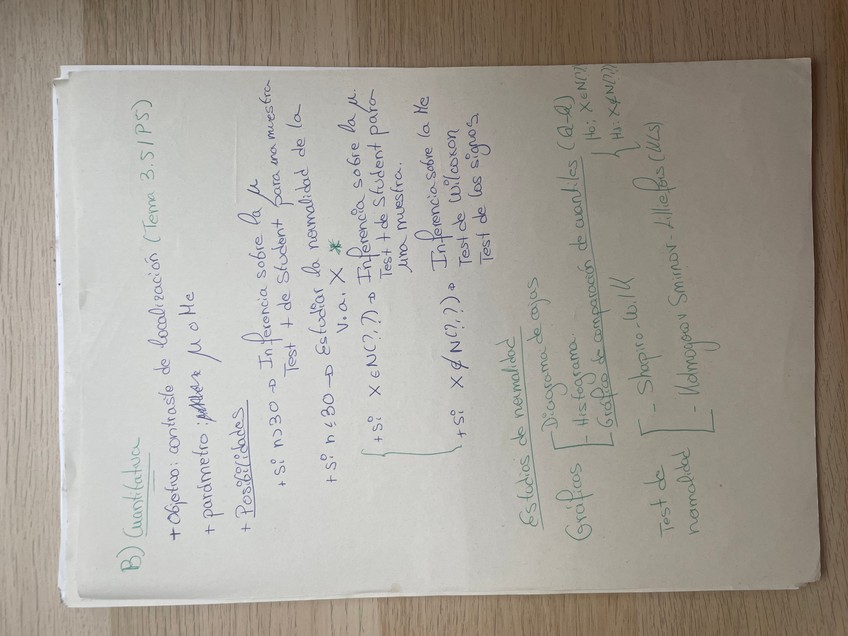 B) Cuantitativa
+ Objetivo: contraste de localización (Tema 3.5/P5)
+ parámetro: μ o Me
+ Posibilidades
+ Si n>30 → Inferencia sobre la μ
Test t de Student para una muestra
+ si n ≤ 30 → Estudiar la normalidad de la
v.a. X *
+ si X ∈ N(?,?) → Inferencia sobre la μ.
Test t de Student para
una muestra.
+ si X ∉ N(?,?) → Inferencia sobre la Me
Test de Wilcoxon
Test de los signos
Estudios de normalidad
Gráficos
Diagrama de cajas
- Histograma
- Gráfico de comparación de cuantiles (Q-Q)
Test de normalidad
H0: X ∈ N(?,?)
H1: X ∉ N(?,?)
- Shapiro-Wilk
- Kolmogorov Smirnov-Lilliefors (KLS)